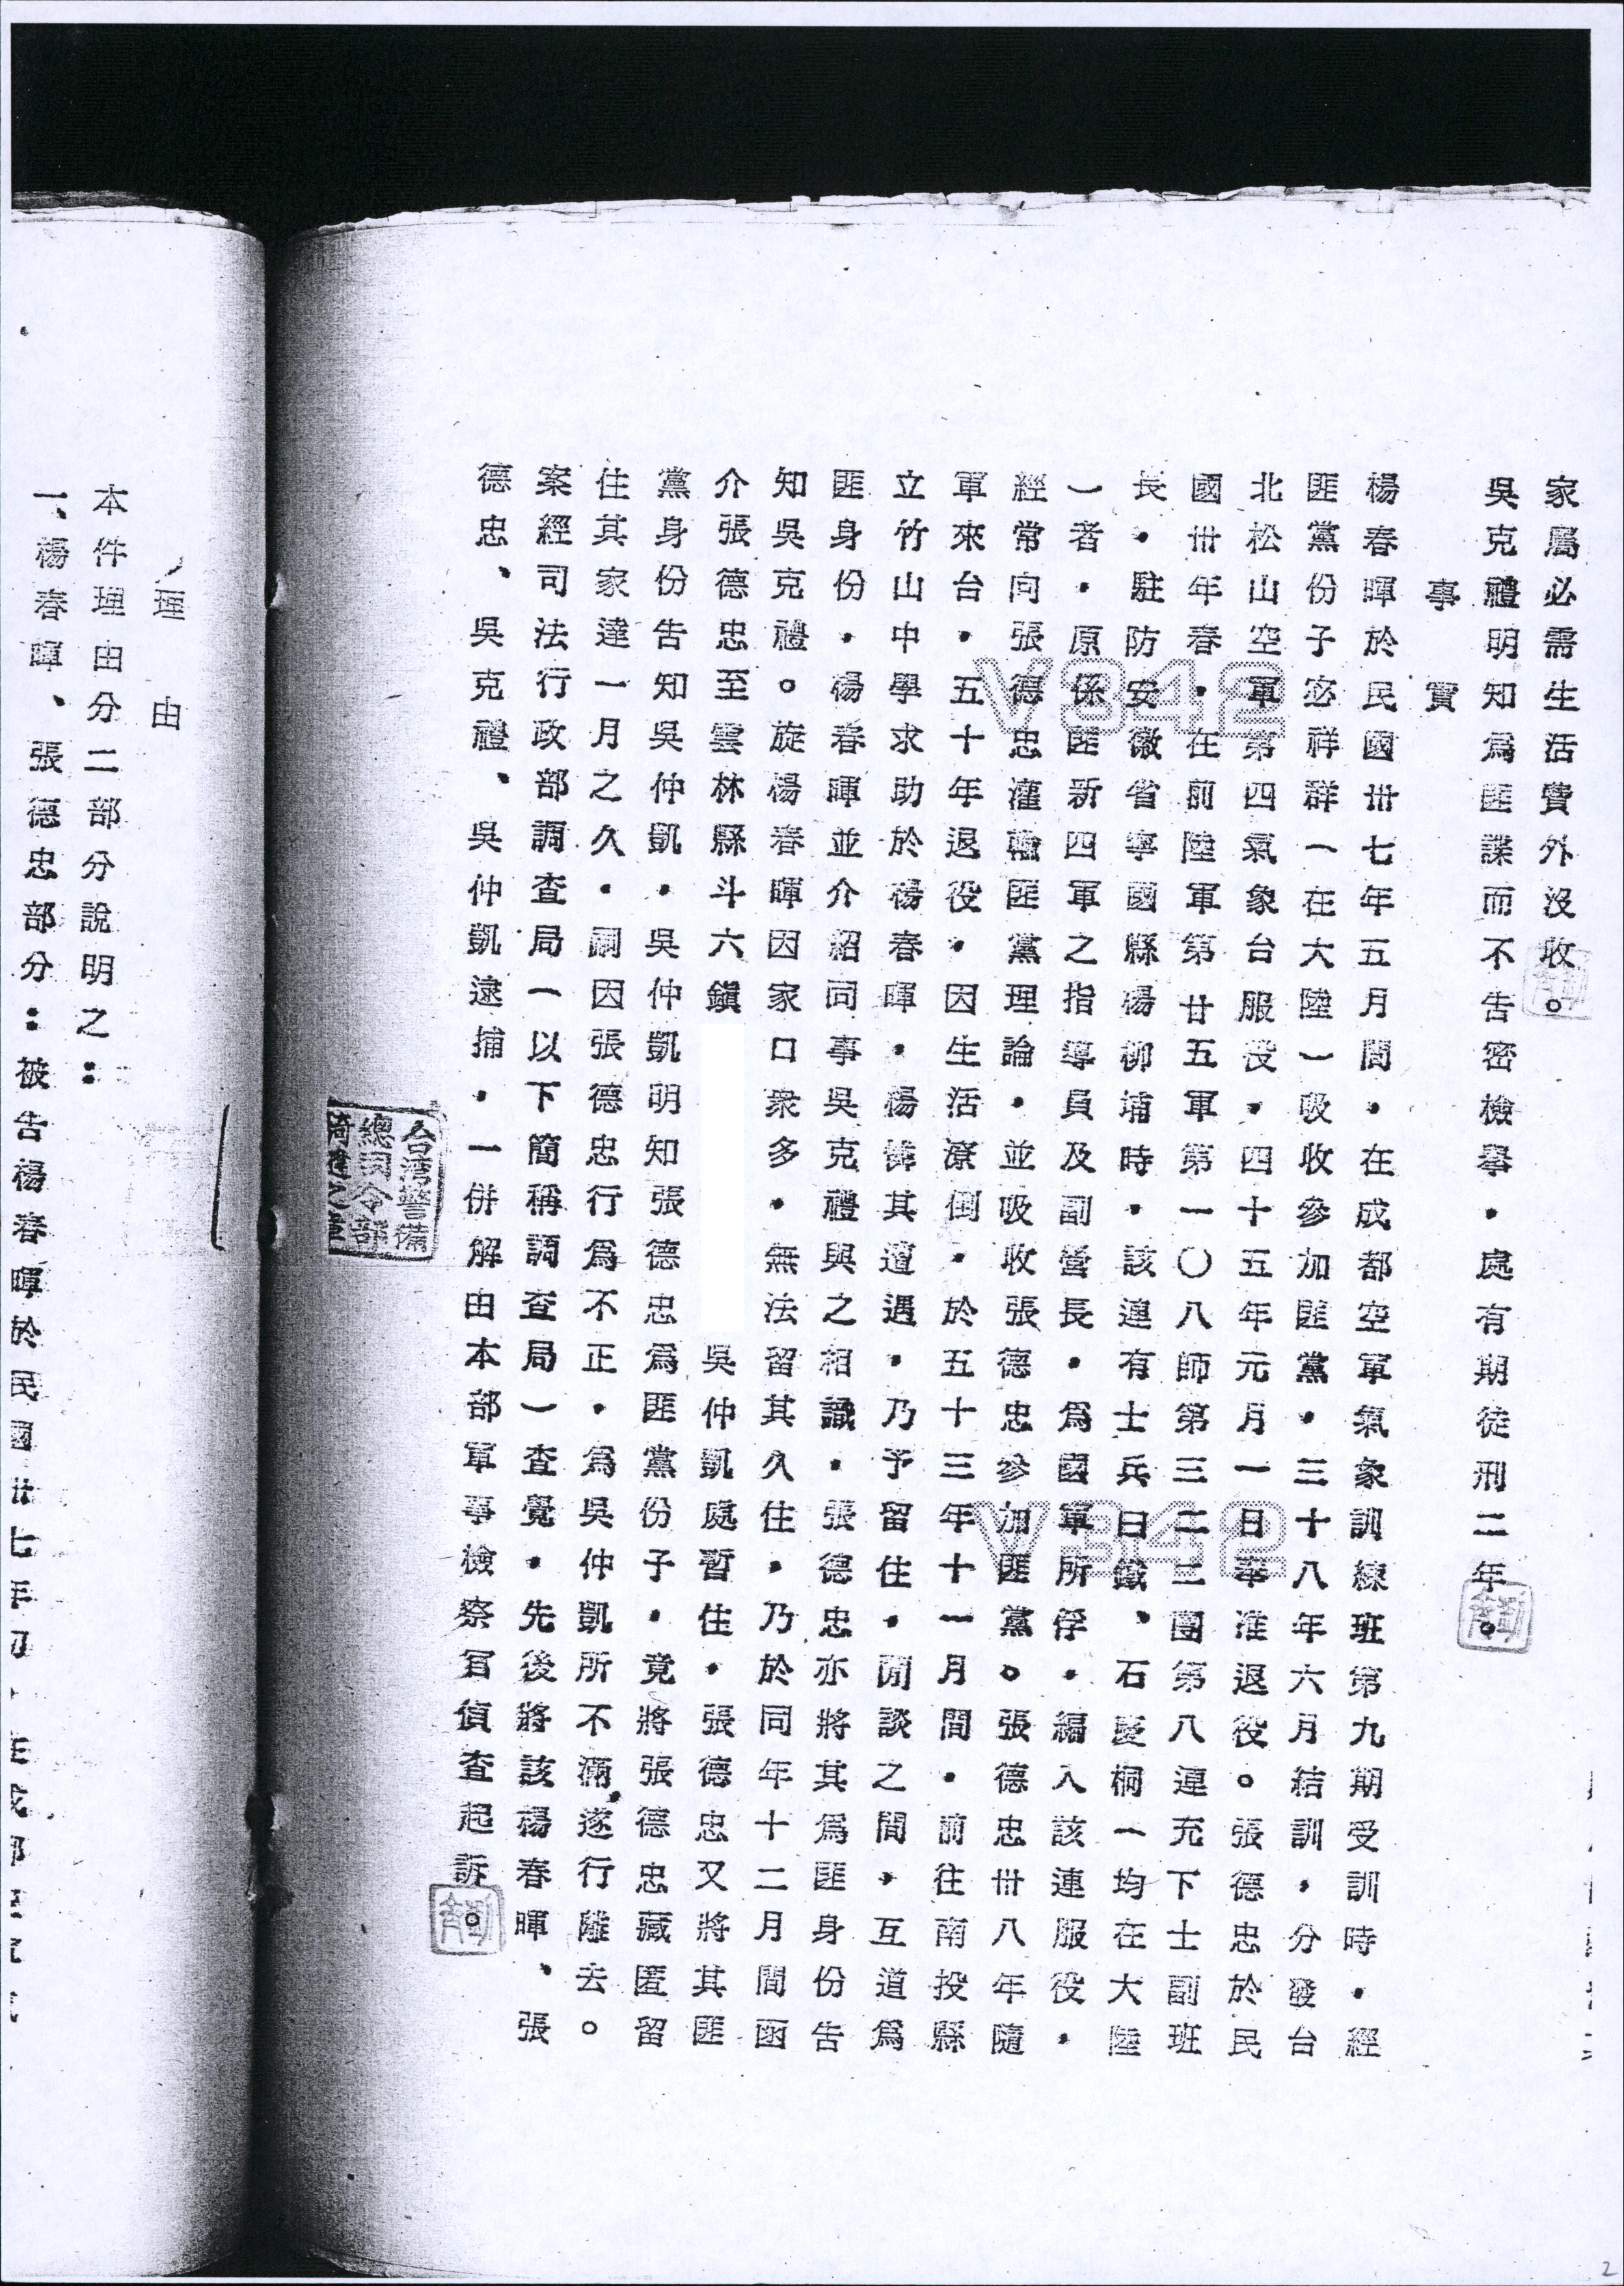 家屬必需生活費外沒收。
吳克禮明知為匪諜而不告密檢舉，處有期徒刑二年。
事實
楊春暉於民國卅七年五月間，在成都空軍氣象訓練班第九期受訓時，經
匪黨份子宓祥群（在大陸）吸收參加匪黨，三十八年六月結訓，分發台
北松山空軍第四氣象台服役，四十五年元月一日奉准退役。張德忠於民
國卅年春，在前陸軍第廿五軍第一〇八師第三二二團第八連充下士副班
長，駐防安徽省寧國縣楊柳埔時，該連有士兵曰、石桐（均在大陸
）者，原係匪新四軍之指導員及副營長，為國軍所俘，編入該連服役，
經常向張德忠灌輸匪黨理論，並吸收張德忠參加匪黨。張德忠卅八年隨
軍來台，五十年退役，因生活潦倒，於五十三年十一月間，前往南投縣
立竹山中學求助於楊春暉，楊憐其遭遇，乃予留住，閒談之間，互道為
匪身份，楊春暉並介紹同事吳克禮與之相識，張德忠亦將其為匪身份告
知吳克禮。旋楊春暉因家口衆多，無法留其久住，乃於同年十二月間函
介張德忠至雲林縣斗六鎮吳仲凱處暫住，張德忠又將其匪
黨身份告知吳仲凱，吳仲凱明知張德忠為匪黨份子，竟將張德忠藏匿留
住其家達一月之久，嗣因張德忠行為不正，為吳仲凱所不滿，遂行離去。
案經司法行政部調查局（以下簡稱調查局）查覺，先後將該楊春暉、張
德忠、吳克禮、吳仲凱逮捕，一併解由本部軍事檢察官偵查起訴。
台灣警備
總司令部
騎縫之章
理由
本件理由分二部分說明之：
一、楊春暉、張德忠部分：被告楊春暉於民國卅七年
V342
V342
2